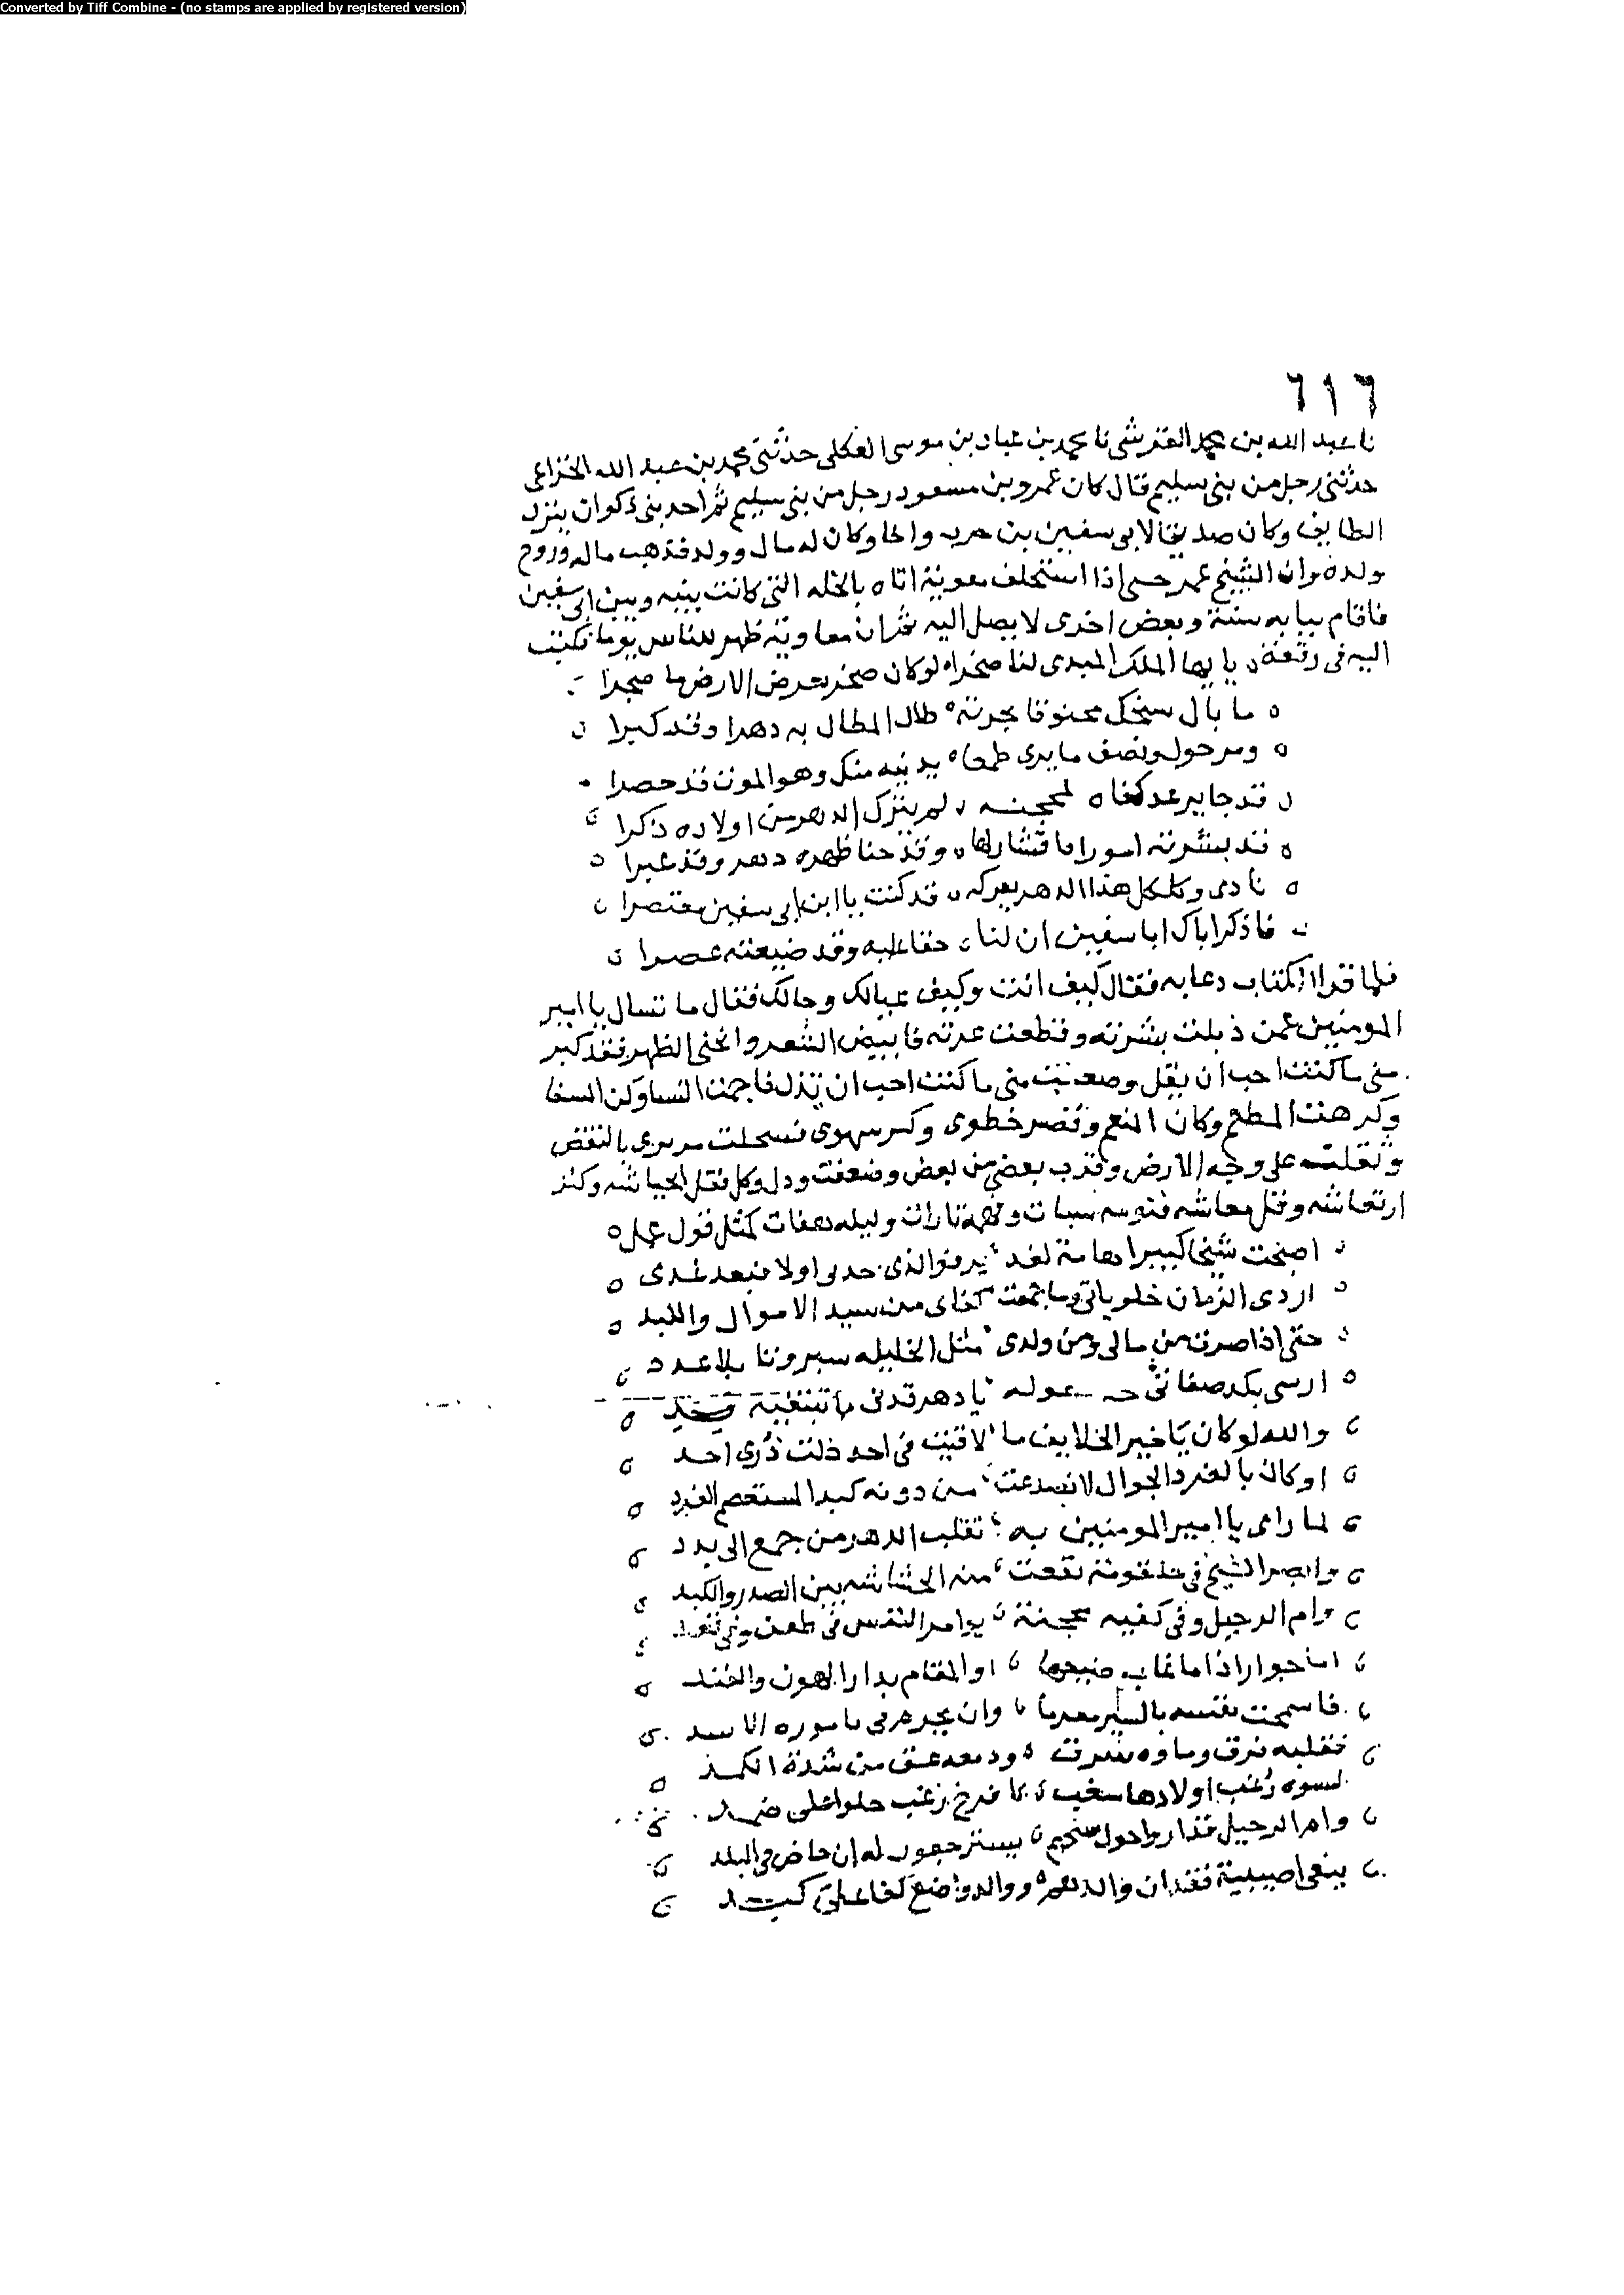 Converted by Tiff Combine - (no stamps are applied by registered version)
٦١٦
نا عبد الله بن محمد القرشى نا محمد بن عباد بن موسى العكلى حدثنى محمد بن عبد الله الخزاعى
حدثنى رجل من بنى سليم قال كان عمرو بن مسعود رجل من بنى سليم ثم احد بنى ذكوان ينزل
الطايف وكان صديقا لابى سفين بن حرب واخا وكان له مال وولد فذهب ماله وزوج
ولده وان الشيخ عمر حتى اذا استخلف معوية اتاه بالخله التى كانت بينه وبين ابى سفين
فاقام ببابه سنة وبعض اخرى لا يصل اليه ثم ان معاوية ظهر للناس يوما فكتب
اليه فى رقعة يا ايها الملك المبدى لنا ضجرا لو كان صخر بعرض الارض ما ضجرا
ما بال شيخك مخنوقا بجرته طال المطال به دهرا وقد كبرا
ومر حول ونصف ما يرى طمعا يدنيه منك وهو الموت قد حضرا
قد جا يرعد كفاه لمحجنه لم يترك الدهر من اولاده ذكرا
قد بشرته امورا فاقشار لها وقد حنا ظهره دهر وقد غبرا
نادى وكلكل هذا الدهر يعركه قد كنت يا ابن ابى سفين معتصرا
فاذكر اباك ابا سفين ان لنا حقا عليه وقد ضيعته عصرا
فلما قرا الكتاب دعا به فقال كيف انت وكيف عيالك وحالك فقال ما تسال يا امير
المومنين عمن ذبلت بشرته وقطعت عدته فابيض الشعر وانحنى الظهر فقد كبر
منى ما كنت احب ان يقل وصعب منى ما كنت احب ان يذل فاجمت النسا وكن الشفا
وكرهت المطعم وكان المنعم وقصر خطوى وكثر سهوى فسحلت مريرتى بالنقض
وثقلت على وجه الارض وقرب بعضى من بعض وضعفت ودل وكل فقل انحياشه وكثر
ارتعاشه وقل معاشه فنومه سبات وفهمه تارات وليله هفات كمثل قول عمك
اصبحت شيخا كبيرا هامة لغد يزقو لذى جدثى او لا فبعد غدى
اردى الزمان حلوباتى وما جمعت كفاى من سبد الاموال واللبد
حتى اذا صرت من مالى ومن ولدى مثل الخليله سبروتا بلا عدد
ارسى بكد صفاتى يا دهر قدنى ما تبتغيه
والله لو كان يا خير الخلايف ما لاقيت فى احد ذلت ذرى احد
او كان بالفرد الجوال لانصدعت من دونه كبد المستعصم الفرد
لما راى يا امير المومنين به تقلب الدهر من جمع الى بدد
وابصر الشيخ فى حلقومه نقعت منه الحشاشه بين الصدر والكبد
رام الرحيل وفى كفيه محجنة يوامر النفس فى ظعن وفى قعد
اما جوار اذا ما غاب ضيعها او المقام بدار الهون والفند
فاسمحت نفسه بالسير معتزما وان تجرم فى تاموره الاسد
فقلبه فرق وماوه شرق ودمعه غسق من شدة الكمد
لنسوة زغب اولادها سغب كافرخ زغب حلوا على ضمد
رام الرحيل فداروا حول شيخهم يسترجعون له ان خاض فى البلد
ينعى اصيبية فقدان والدهم ووالد واضع كفا على كبد